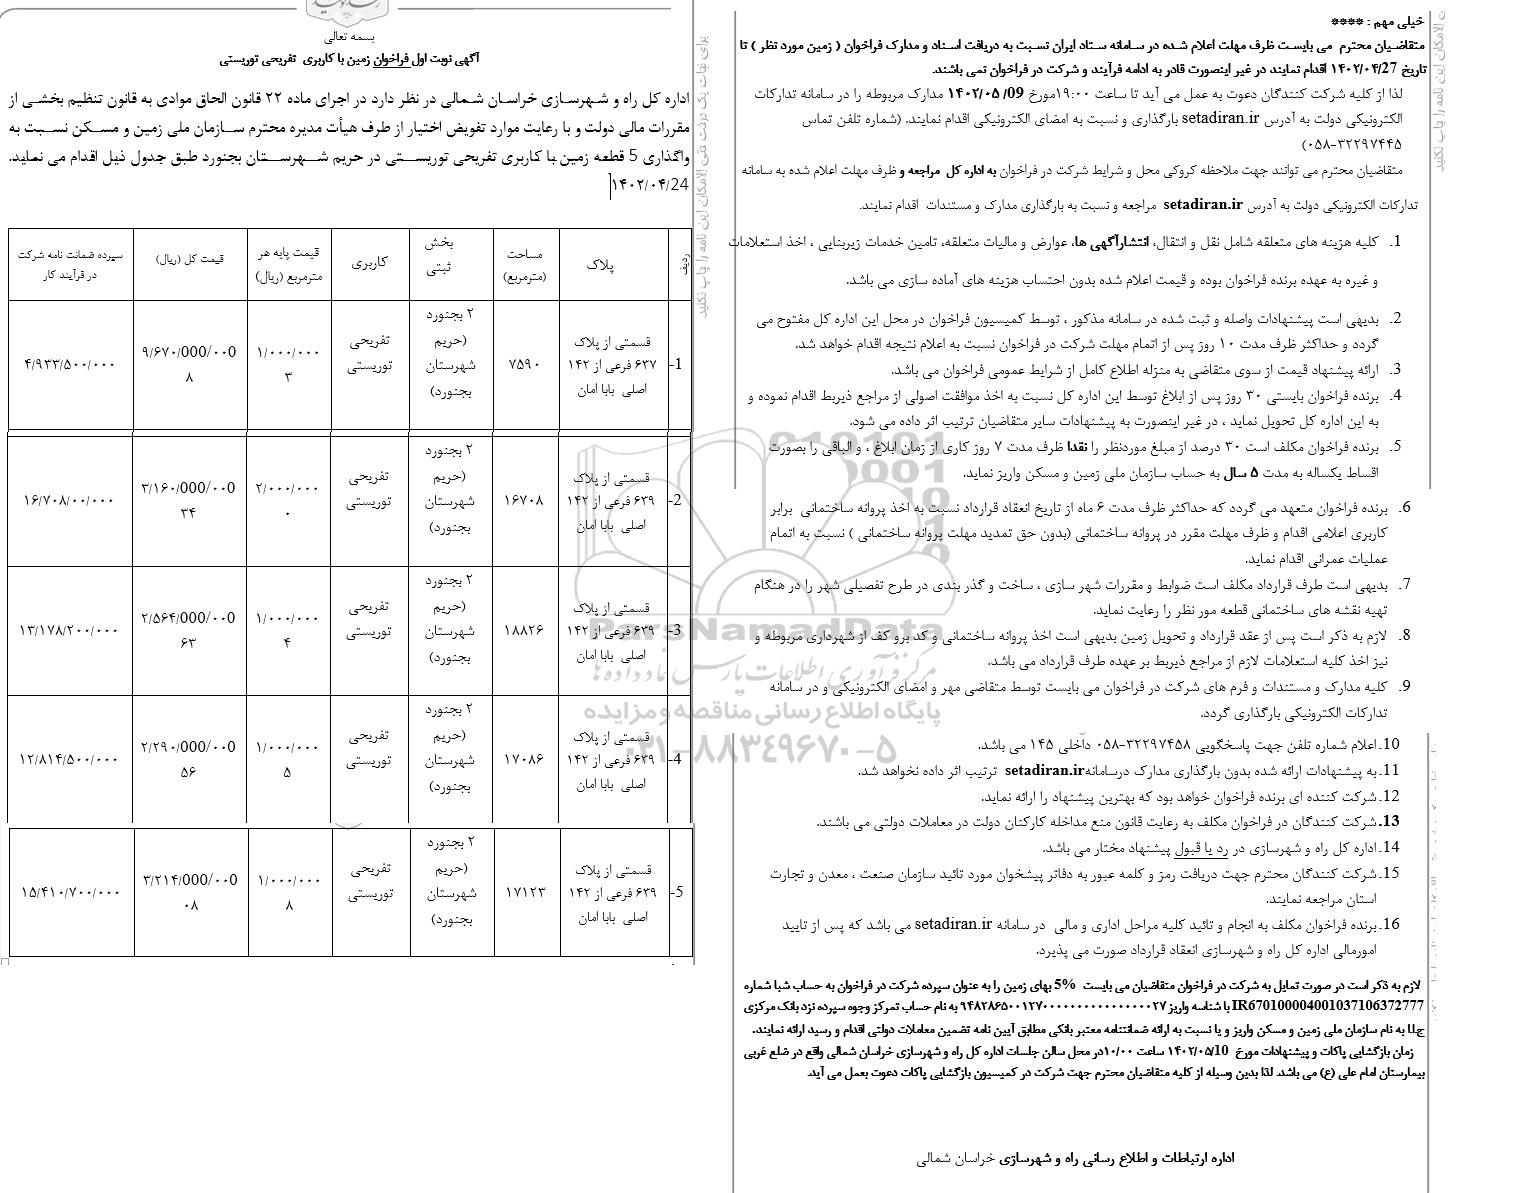 بسمه تعالی
آگهی نوبت اول فراخوان زمین با کاربری تفریحی توریستی
اداره کل راه و شهرسازی خراسان شمالی در نظر دارد در اجرای ماده ۲۲ قانون الحاق موادی به قانون تنظیم بخشی از
مقررات مالی دولت و با رعایت موارد تفویض اختیار از طرف هیأت مدیره محترم سازمان ملی زمین و مسکن نسبت به
واگذاری 5 قطعه زمین با کاربری تفریحی توریستی در حریم شهرستان بجنورد طبق جدول ذیل اقدام می نماید.
۱۴۰۲/۰۴/24
ردیف | پلاک | مساحت (مترمربع) | بخش ثبتی | کاربری | قیمت پایه هر مترمربع (ریال) | قیمت کل (ریال) | سپرده ضمانت نامه شرکت در فرآیند کار
1- | قسمتی از پلاک ۶۳۷ فرعی از ۱۴۲ اصلی بابا امان | ۷۵۹۰ | ۲ بجنورد (حریم شهرستان بجنورد) | تفریحی توریستی | ۱/۰۰۰/۰۰۰ ۳ | ۹/۶۷۰/000/۰۰0 ۸ | ۴/۹۳۳/۵۰۰/۰۰۰
2- | قسمتی از پلاک ۶۳۹ فرعی از ۱۴۲ اصلی بابا امان | ۱۶۷۰۸ | ۲ بجنورد (حریم شهرستان بجنورد) | تفریحی توریستی | ۲/۰۰۰/۰۰۰ ۰ | ۳/۱۶۰/000/۰۰0 ۳۴ | ۱۶/۷۰۸/۰۰/۰۰۰
3- | قسمتی از پلاک ۶۳۹ فرعی از ۱۴۲ اصلی بابا امان | ۱۸۸۲۶ | ۲ بجنورد (حریم شهرستان بجنورد) | تفریحی توریستی | ۱/۰۰۰/۰۰۰ ۴ | ۲/۵۶۴/000/۰۰0 ۶۳ | ۱۳/۱۷۸/۲۰۰/۰۰۰
4- | قسمتی از پلاک ۶۳۹ فرعی از ۱۴۲ اصلی بابا امان | ۱۷۰۸۶ | ۲ بجنورد (حریم شهرستان بجنورد) | تفریحی توریستی | ۱/۰۰۰/۰۰۰ ۵ | ۲/۲۹۰/000/۰۰0 ۵۶ | ۱۲/۸۱۴/۵۰۰/۰۰۰
5- | قسمتی از پلاک ۶۳۹ فرعی از ۱۴۲ اصلی بابا امان | ۱۷۱۲۳ | ۲ بجنورد (حریم شهرستان بجنورد) | تفریحی توریستی | ۱/۰۰۰/۰۰۰ ۸ | ۳/۲۱۴/000/۰۰0 ۰۸ | ۱۵/۴۱۰/۷۰۰/۰۰۰
خیلی مهم : ****
متقاضیان محترم می بایست ظرف مهلت اعلام شده در سامانه ستاد ایران نسبت به دریافت اسناد و مدارک فراخوان ( زمین مورد نظر ) تا
تاریخ ۱۴۰۲/۰۴/27 اقدام نمایند در غیر اینصورت قادر به ادامه فرآیند و شرکت در فراخوان نمی باشند.
لذا از کلیه شرکت کنندگان دعوت به عمل می آید تا ساعت ۱۹:۰۰مورخ 09/ ۱۴۰۲/۰۵ مدارک مربوطه را در سامانه تدارکات
الکترونیکی دولت به آدرس setadiran.ir بارگذاری و نسبت به امضای الکترونیکی اقدام نمایند. (شماره تلفن تماس
۰۵۸-۳۲۲۹۷۴۴۵)
متقاضیان محترم می توانند جهت ملاحظه کروکی محل و شرایط شرکت در فراخوان به اداره کل مراجعه و ظرف مهلت اعلام شده به سامانه
تدارکات الکترونیکی دولت به آدرس setadiran.ir مراجعه و نسبت به بارگذاری مدارک و مستندات اقدام نمایند.
1. کلیه هزینه های متعلقه شامل نقل و انتقال، انتشارآگهی ها، عوارض و مالیات متعلقه، تامین خدمات زیربنایی ، اخذ استعلامات
و غیره به عهده برنده فراخوان بوده و قیمت اعلام شده بدون احتساب هزینه های آماده سازی می باشد.
2. بدیهی است پیشنهادات واصله و ثبت شده در سامانه مذکور ، توسط کمیسیون فراخوان در محل این اداره کل مفتوح می
گردد و حداکثر ظرف مدت ۱۰ روز پس از اتمام مهلت شرکت در فراخوان نسبت به اعلام نتیجه اقدام خواهد شد.
3. ارائه پیشنهاد قیمت از سوی متقاضی به منزله اطلاع کامل از شرایط عمومی فراخوان می باشد.
4. برنده فراخوان بایستی ۳۰ روز پس از ابلاغ توسط این اداره کل نسبت به اخذ موافقت اصولی از مراجع ذیربط اقدام نموده و
به این اداره کل تحویل نماید ، در غیر اینصورت به پیشنهادات سایر متقاضیان ترتیب اثر داده می شود.
5. برنده فراخوان مکلف است ۳۰ درصد از مبلغ موردنظر را نقدا ظرف مدت ۷ روز کاری از زمان ابلاغ ، و الباقی را بصورت
اقساط یکساله به مدت ۵ سال به حساب سازمان ملی زمین و مسکن واریز نماید.
6. برنده فراخوان متعهد می گردد که حداکثر ظرف مدت ۶ ماه از تاریخ انعقاد قرارداد نسبت به اخذ پروانه ساختمانی برابر
کاربری اعلامی اقدام و ظرف مهلت مقرر در پروانه ساختمانی (بدون حق تمدید مهلت پروانه ساختمانی ) نسبت به اتمام
عملیات عمرانی اقدام نماید.
7. بدیهی است طرف قرارداد مکلف است ضوابط و مقررات شهر سازی ، ساخت و گذر بندی در طرح تفصیلی شهر را در هنگام
تهیه نقشه های ساختمانی قطعه مور نظر را رعایت نماید.
8. لازم به ذکر است پس از عقد قرارداد و تحویل زمین بدیهی است اخذ پروانه ساختمانی و کد برو کف از شهرداری مربوطه و
نیز اخذ کلیه استعلامات لازم از مراجع ذیربط بر عهده طرف قرارداد می باشد.
9. کلیه مدارک و مستندات و فرم های شرکت در فراخوان می بایست توسط متقاضی مهر و امضای الکترونیکی و در سامانه
تدارکات الکترونیکی بارگذاری گردد.
10. اعلام شماره تلفن جهت پاسخگویی ۳۲۲۹۷۴۵۸-۰۵۸ داخلی ۱۴۵ می باشد.
11. به پیشنهادات ارائه شده بدون بارگذاری مدارک درسامانهsetadiran.ir ترتیب اثر داده نخواهد شد.
12. شرکت کننده ای برنده فراخوان خواهد بود که بهترین پیشنهاد را ارائه نماید.
13. شرکت کنندگان در فراخوان مکلف به رعایت قانون منع مداخله کارکنان دولت در معاملات دولتی می باشند.
14. اداره کل راه و شهرسازی در رد یا قبول پیشنهاد مختار می باشد.
15. شرکت کنندگان محترم جهت دریافت رمز و کلمه عبور به دفاتر پیشخوان مورد تائید سازمان صنعت ، معدن و تجارت
استان مراجعه نمایند.
16. برنده فراخوان مکلف به انجام و تائید کلیه مراحل اداری و مالی در سامانه setadiran.ir می باشد که پس از تایید
امورمالی اداره کل راه و شهرسازی انعقاد قرارداد صورت می پذیرد.
لازم به ذکر است در صورت تمایل به شرکت در فراخوان متقاضیان می بایست 5% بهای زمین را به عنوان سپرده شرکت در فراخوان به حساب شبا شماره
IR670100004001037106372777 با شناسه واریز ۹۴۸۲۸۶۵۰۰۱۲۷۰۰۰۰۰۰۰۰۰۰۰۰۰۰۰۰۲۷ به نام حساب تمرکز وجوه سپرده نزد بانک مرکزی
ج.ا.ا به نام سازمان ملی زمین و مسکن واریز و یا نسبت به ارائه ضمانتنامه معتبر بانکی مطابق آیین نامه تضمین معاملات دولتی اقدام و رسید ارائه نمایند.
زمان بازگشایی پاکات و پیشنهادات مورخ ۱۴۰۲/۰۵/10 ساعت ۱۰/۰۰در محل سالن جلسات اداره کل راه و شهرسازی خراسان شمالی واقع در ضلع غربی
بیمارستان امام علی (ع) می باشد. لذا بدین وسیله از کلیه متقاضیان محترم جهت شرکت در کمیسیون بازگشایی پاکات دعوت بعمل می آید.
اداره ارتباطات و اطلاع رسانی راه و شهرسازی خراسان شمالی
ParsNamadData
مرکز فرآوری اطلاعات پارس نماد داده ها
پایگاه اطلاع رسانی مناقصه و مزایده
۰۲۱-۸۸۳۴۹۶۷۰-۵
برای نجات یک درخت حتی الامکان این نامه را چاپ نکنید